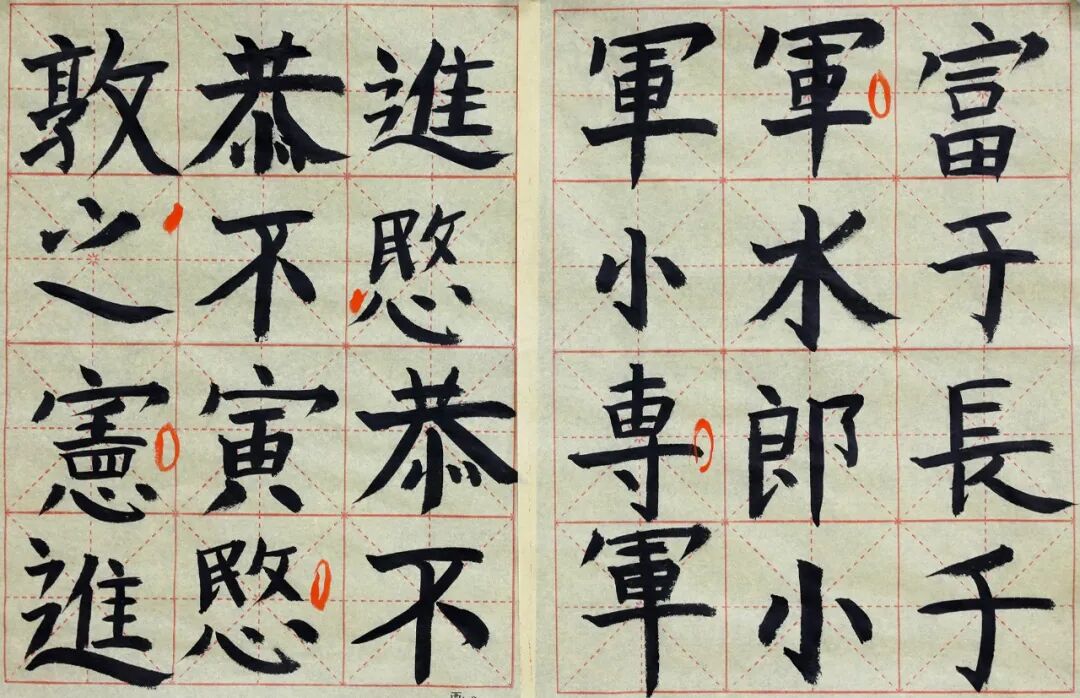 富于長于
軍水郎小
軍小専軍
進愍恭不
恭不寅愍
敦之憲進